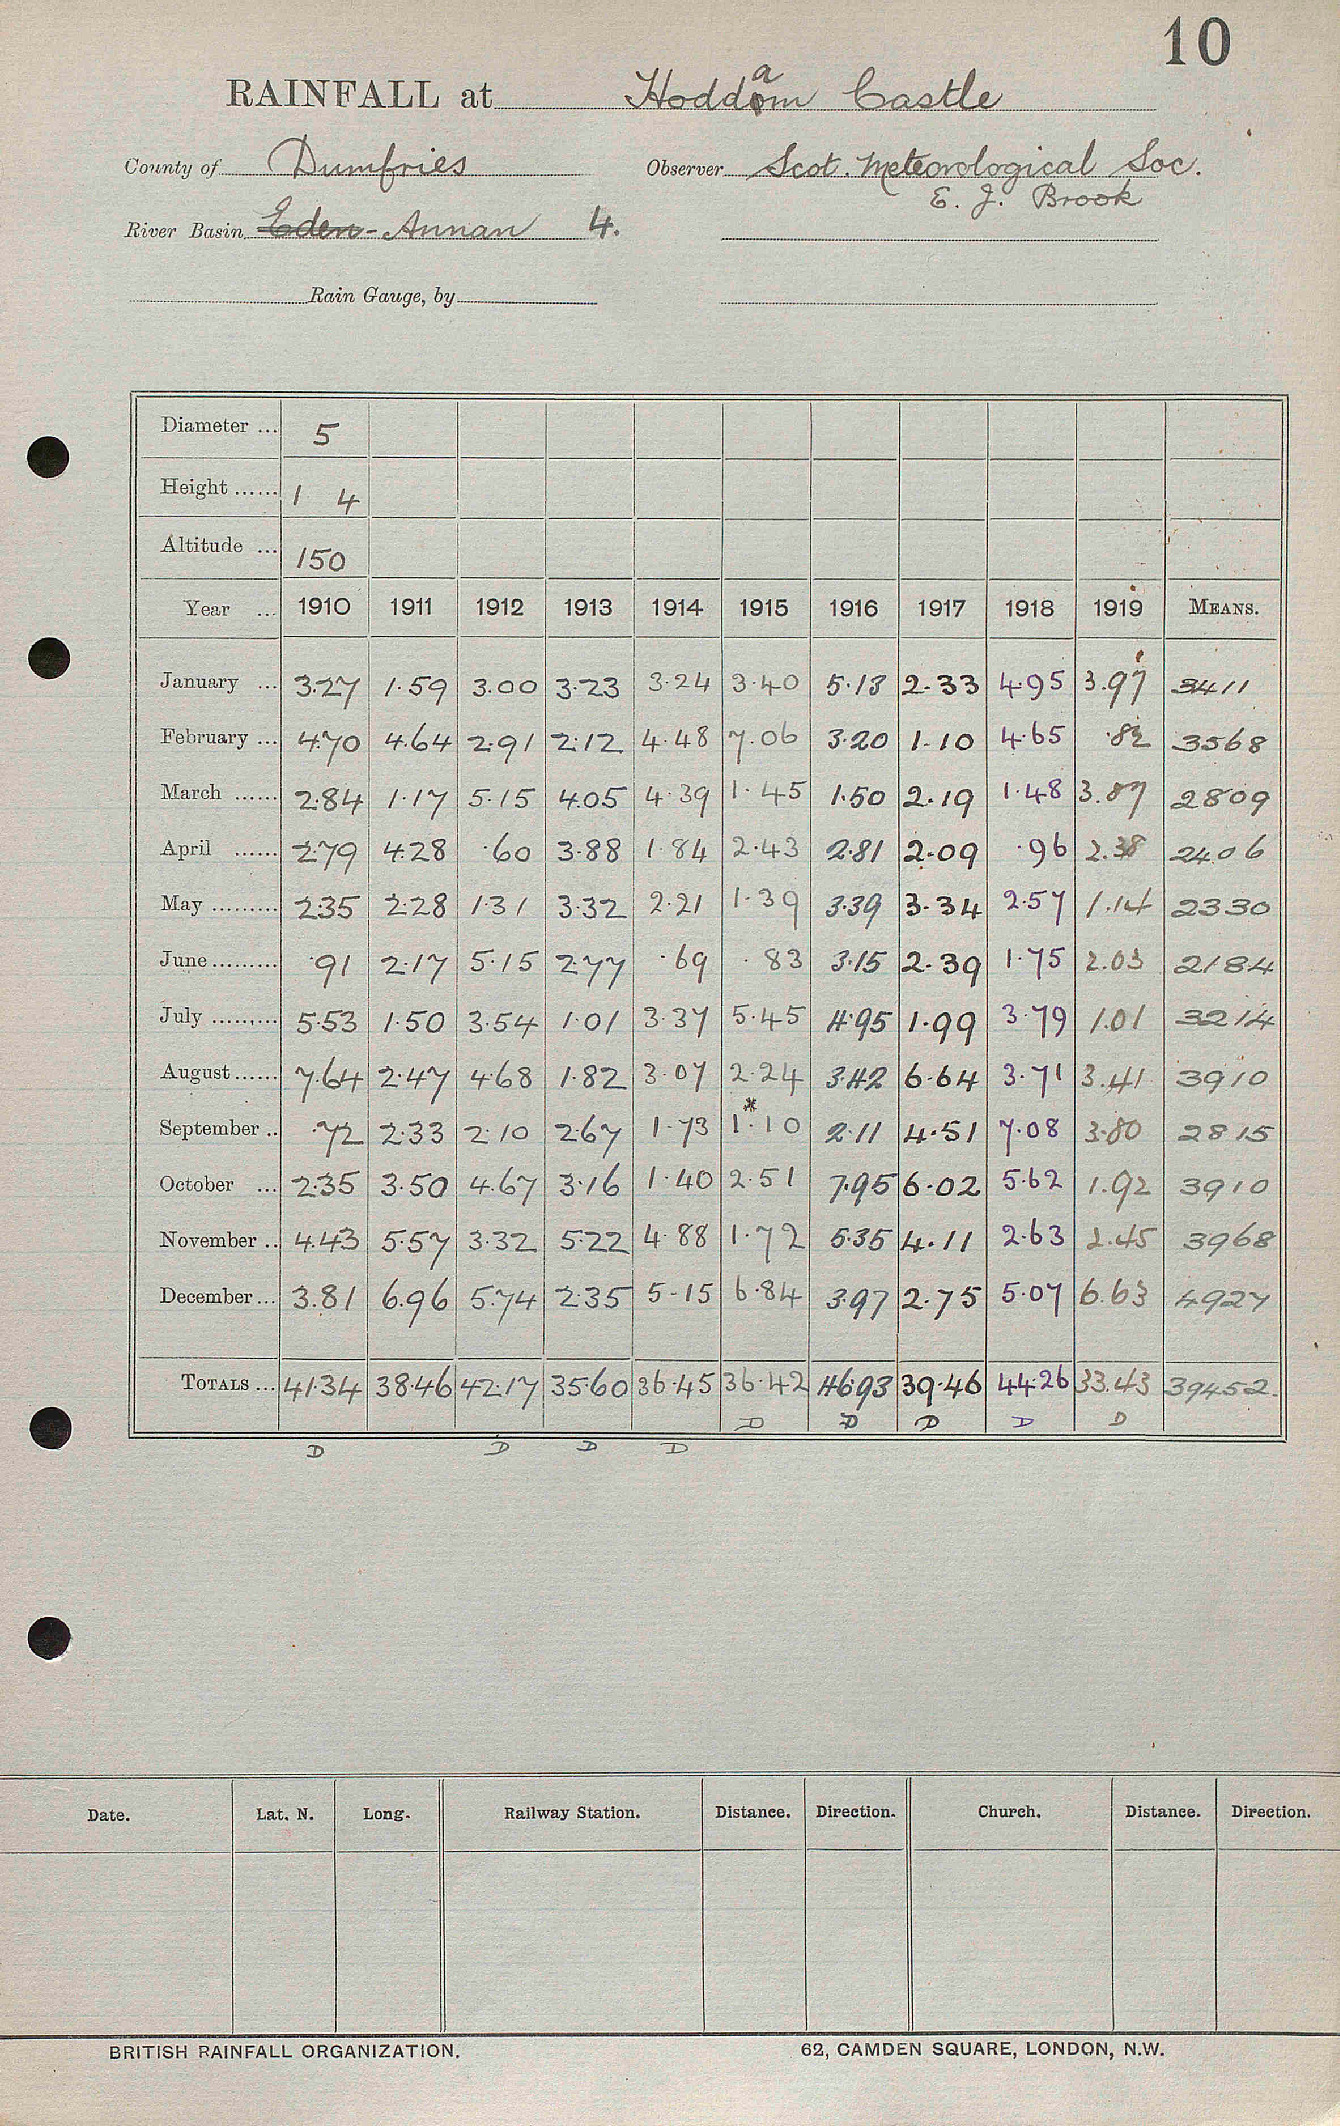 10
RAINFALL at Hoddom Castle
a
County of Dumfries Observer Scot. Meteorological Soc.
E. J. Brook
River Basin Eden - Annan 4.
Rain Gauge, by
Diameter ... 5
Height ...... 1 4
Altitude ... 150
Year ... 1910 1911 1912 1913 1914 1915 1916 1917 1918 1919 MEANS.
January ... 3.27 1.59 3.00 3.23 3.24 3.40 5.13 2.33 4.95 3.97 3411
February ... 4.70 4.64 2.91 2.12 4.48 7.06 3.20 1.10 4.65 .82 3568
March ...... 2.84 1.17 5.15 4.05 4.39 1.45 1.50 2.19 1.48 3.87 2809
April ...... 2.79 4.28 .60 3.88 1.84 2.43 2.81 2.09 .96 2.38 2406
May ......... 2.35 2.28 1.31 3.32 2.21 1.39 3.39 3.34 2.57 1.14 2330
June ......... .91 2.17 5.15 2.77 .69 .83 3.15 2.39 1.75 2.03 2184
July ......... 5.53 1.50 3.54 1.01 3.37 5.45 4.95 1.99 3.79 1.01 3214
August ...... 7.64 2.47 4.68 1.82 3.07 2.24 3.42 6.64 3.71 3.41 3910
*
September .. .72 2.33 2.10 2.67 1.73 1.10 2.11 4.51 7.08 3.80 2815
October ... 2.35 3.50 4.67 3.16 1.40 2.51 7.95 6.02 5.62 1.92 3910
November .. 4.43 5.57 3.32 5.22 4.88 1.72 5.35 4.11 2.63 2.45 3968
December ... 3.81 6.96 5.74 2.35 5.15 6.84 3.97 2.75 5.07 6.63 4927
TOTALS ... 41.34 38.46 42.17 35.60 36.45 36.42 46.93 39.46 44.26 33.43 39452.
D D D D D
D D D D
Date. Lat. N. Long. Railway Station. Distance. Direction. Church. Distance. Direction.
BRITISH RAINFALL ORGANIZATION. 62, CAMDEN SQUARE, LONDON, N.W.